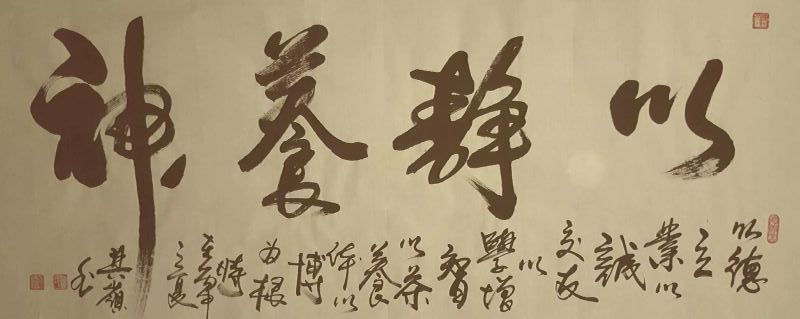 以靜養神
以德
立
業以
誠
交友
以
學增
智
以茶
養
体以
博
为根
時
之夏